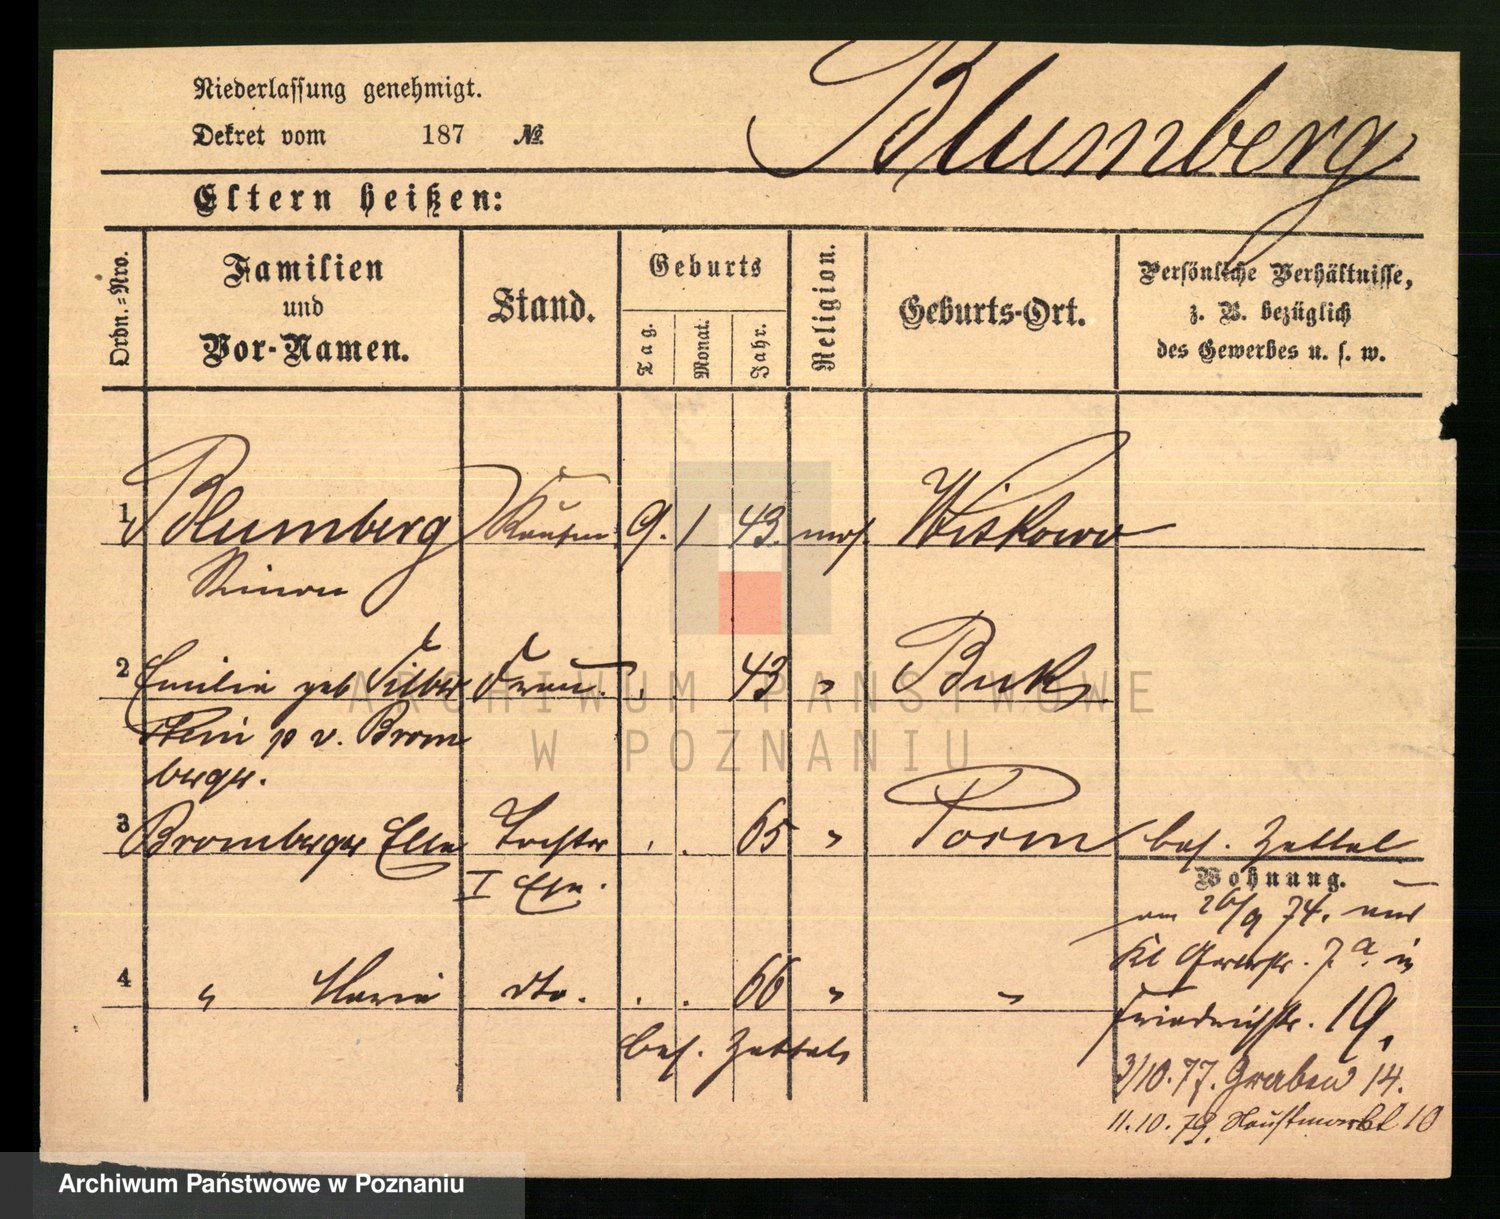 Niederlassung genehmigt.
Dekret vom 187 №
Blumberg
Eltern heißen:
Ordn.=Nro.
Familien
und
Vor-Namen.
Stand.
Geburts
Tag.
Monat.
Jahr.
Religion.
Geburts-Ort.
Persönliche Verhältnisse,
z. B. bezüglich
des Gewerbes u. s. w.
1 Blumberg Kaufm 9. 1 43. mos. Witkowo
Simon
2 Emilie geb Silber Frau . . 43 " Buk
stein p v. Brom
berger.
3 Bromberger Ella Tochter . . 65 " Posen bes. Zettel
I Ehe.
Wohnung.
am 26/9 74. aus
Kl Gerberstr. 7a. in
4 " Maria dto. . . 66 " "
Friedrichstr. 19,
bes. Zettel
3/10.77. Graben 14.
11.10.79. 10
ARCHIWUM PAŃSTWOWE
W POZNANIU
Archiwum Państwowe w Poznaniu